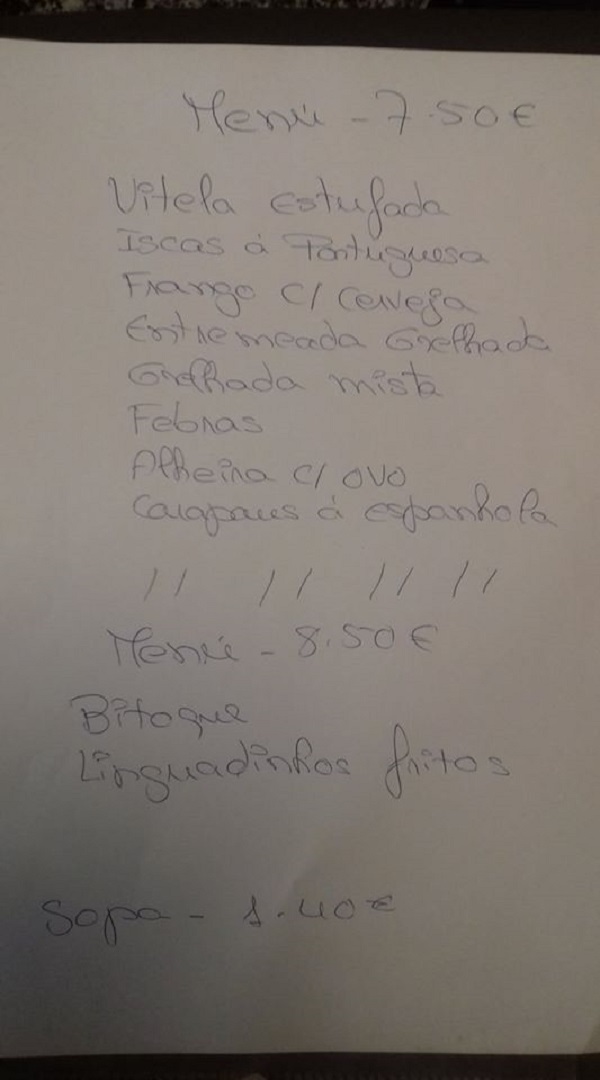 Menú - 7.50€
Vitela estufada
Iscas á Portuguesa
Frango c/ Cerveja
Entremeada Grelhada
Grelhada mista
Febras
Alheira c/ ovo
Carapaus á espanhola
// // // //
Menú - 8.50€
Bitoque
Linguadinhos fritos
Sopa - 1.40€